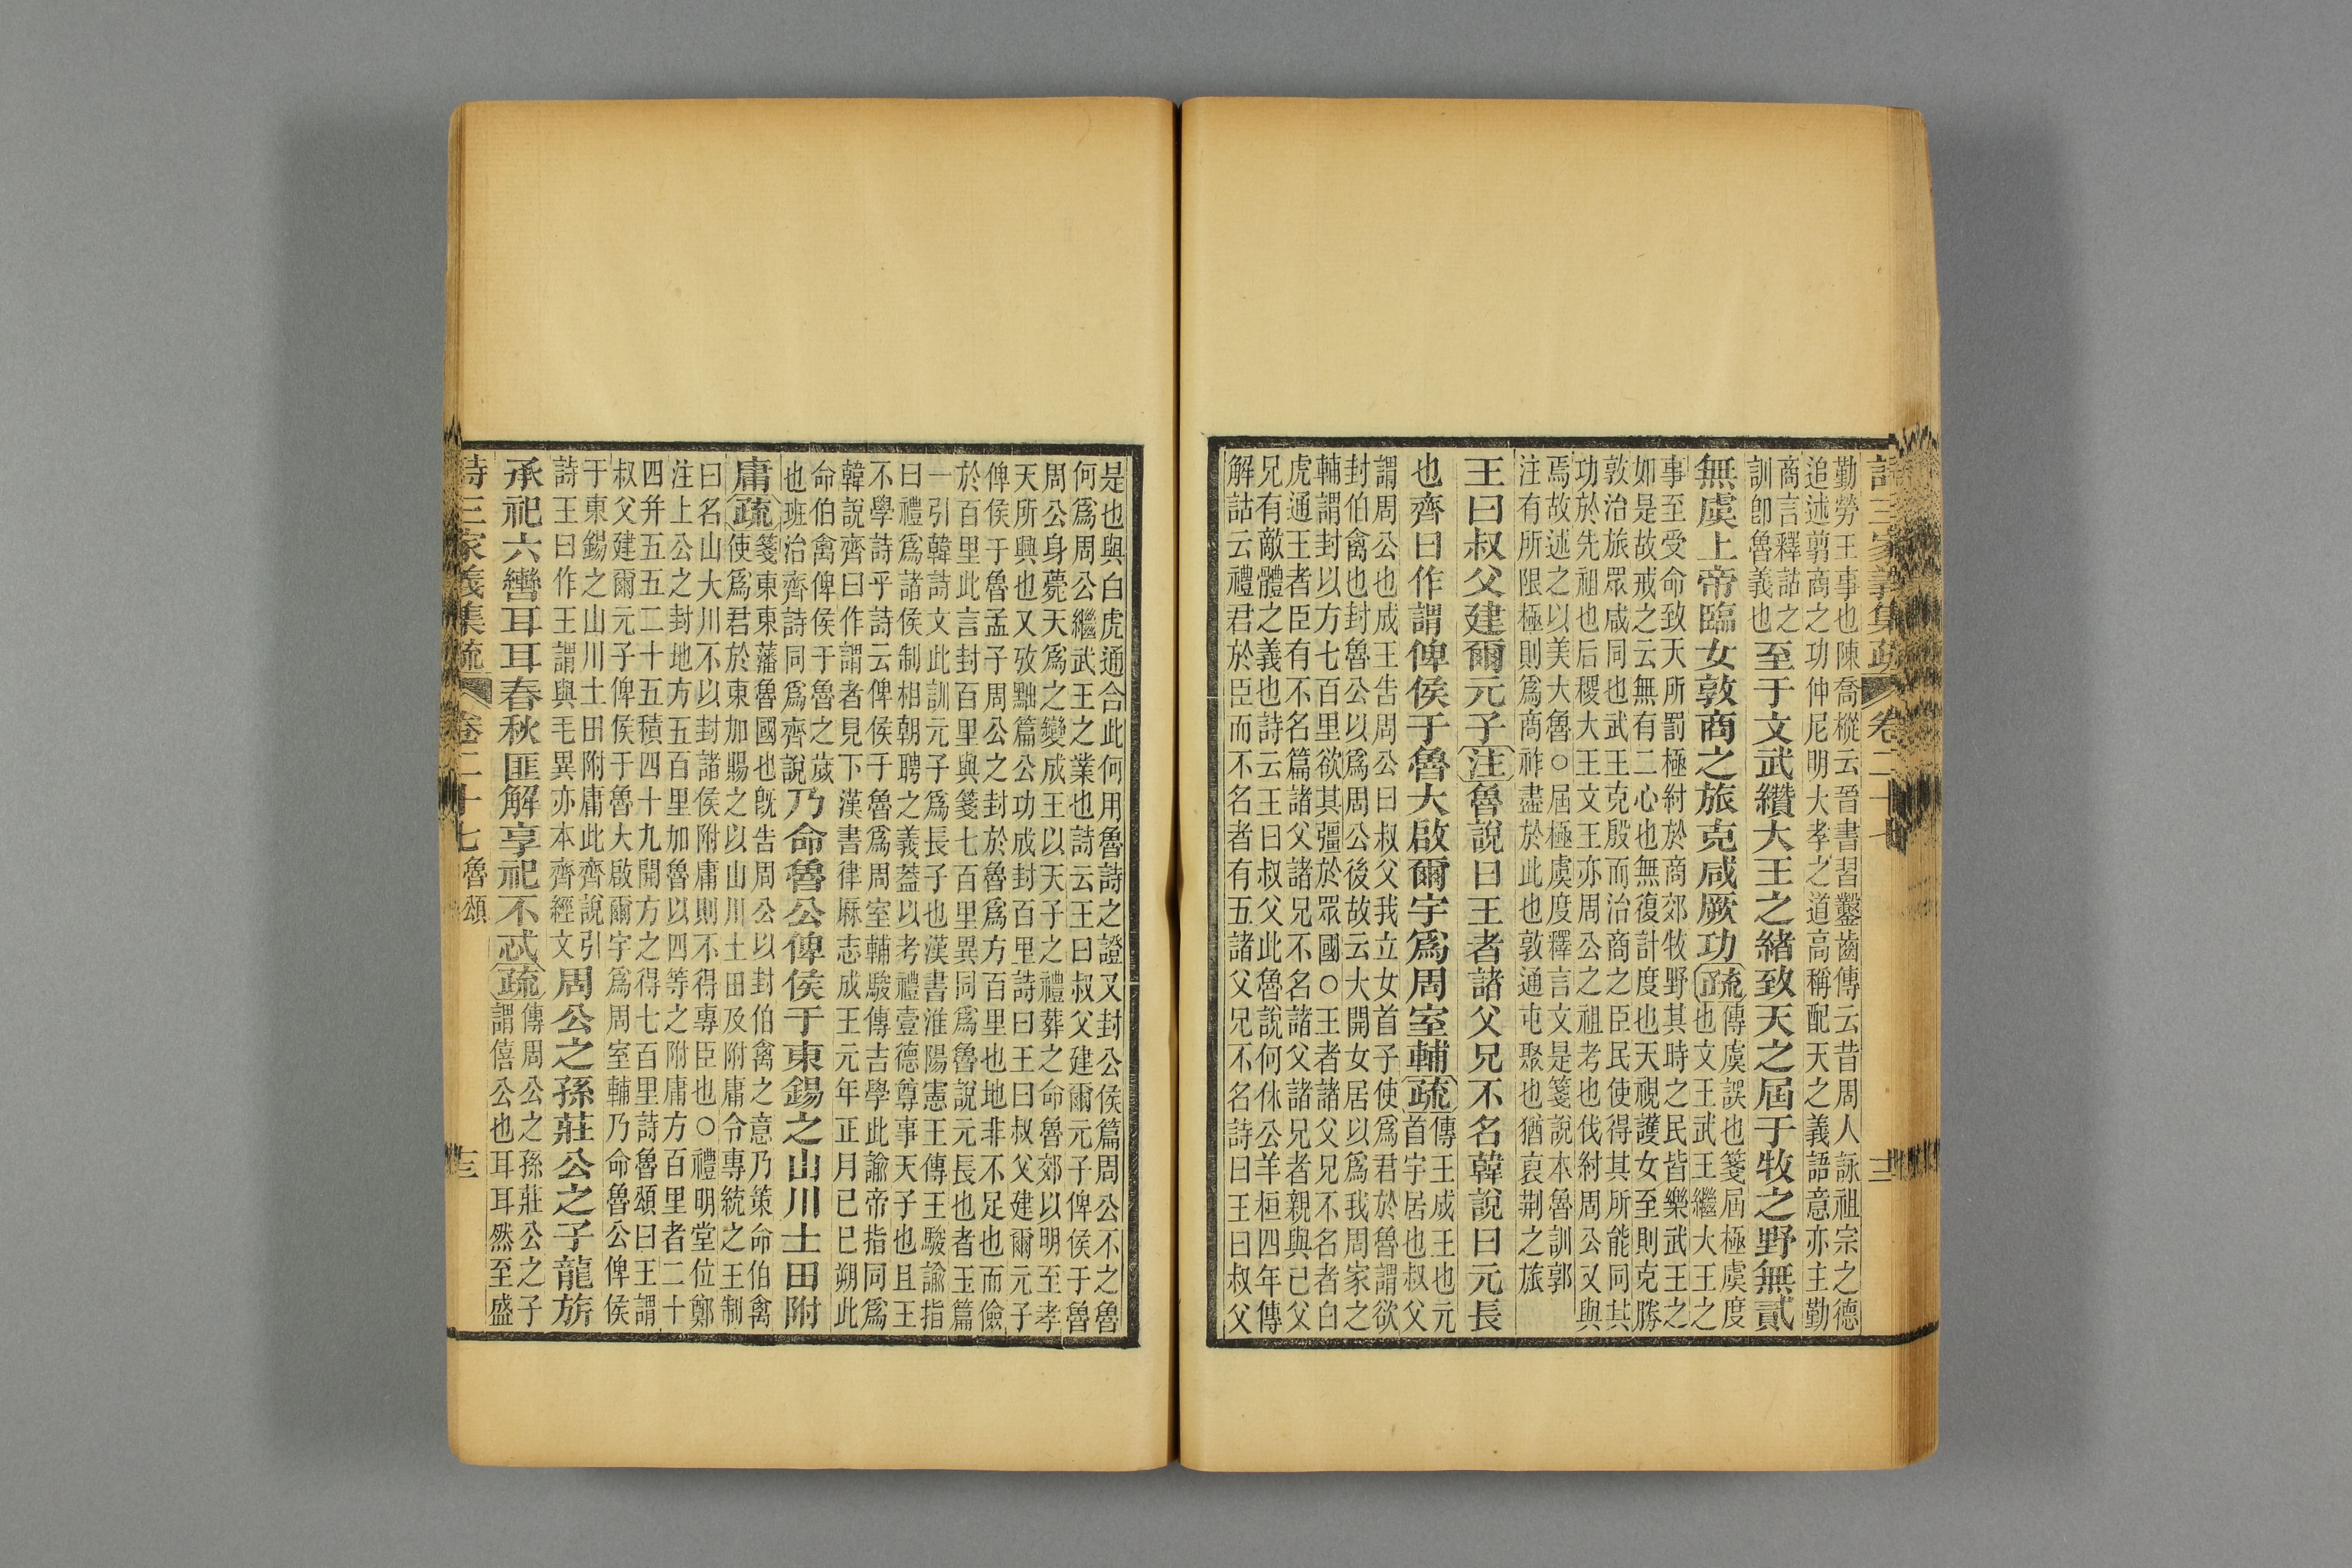 勤勞王事也陳喬樅云晉書習鑿齒傳云昔周人詠祖宗之德
追述翦商之功仲尼明大孝之道高稱配天之義語意亦主勤
商言釋詁之
訓卽魯義也
至于文武纘大王之緒致天之屆于牧之野無貳
無虞上帝臨女敦商之旅克咸厥功疏
傳虞誤也箋屆極虞度
也文王武王繼大王之
事至受命致天所罰極紂於商郊牧野其時之民皆樂武王之
如是故戒之云無有二心也無復計度也天視護女至則克勝
敦治旅眾咸同也武王克殷而治商之臣民使得其所能同其
功於先祖也后稷大王文王亦周公之祖考也伐紂周公又與
焉故述之以美大魯○屆極虞度釋言文是箋說本魯訓郭
注有所限極則爲商祚盡於此也敦通屯聚也猶裒荆之旅
王曰叔父建爾元子注魯說曰王者諸父兄不名韓說曰元長
也齊曰作謂俾侯于魯大啟爾宇爲周室輔疏
傳王成王也元
首宇居也叔父
謂周公也成王告周公曰叔父我立女首子使爲君於魯謂欲
封伯禽也封魯公以爲周公後故云大開女居以爲我周家之
輔謂封以方七百里欲其彊於眾國○王者諸父兄不名者白
虎通王者臣有不名篇諸父諸兄不名諸父諸兄者親與己父
兄有敵體之義也詩云王曰叔父此魯說何休公羊桓四年傳
解詁云禮君於臣而不名者有五諸父兄不名詩曰王曰叔父
是也與白虎通合此何用魯詩之證又封公侯篇周公不之魯
何爲周公繼武王之業也詩云王曰叔父建爾元子俾侯于魯
周公身薨天爲之變成王以天子之禮葬之命魯郊以明至孝
天所興也又攷黜篇公功成封百里詩曰王曰叔父建爾元子
俾侯于魯孟子周公之封於魯爲方百里也地非不足也而儉
於百里此言封百里與箋七百里異同爲魯說元長也者玉篇
一引韓詩文此訓元子爲長子也漢書淮陽憲王傳王駿諭指
曰禮爲諸侯制相朝聘之義葢以考禮壹德尊事天子也且王
不學詩乎詩云俾侯于魯爲周室輔駿傳吉學此諭帝指同爲
韓說齊曰作謂者見下漢書律厤志成王元年正月己巳朔此
命伯禽俾侯于魯之歲
也班治齊詩同爲齊說
乃命魯公俾侯于東錫之山川土田附
庸疏
箋東東藩魯國也旣告周公以封伯禽之意乃策命伯禽
使爲君於東加賜之以山川土田及附庸令專統之王制
曰名山大川不以封諸侯附庸則不得專臣也○禮明堂位鄭
注上公之封地方五百里加魯以四等之附庸方百里者二十
四并五五二十五積四十九開方之得七百里詩魯頌曰王謂
叔父建爾元子俾侯于魯大啟爾宇爲周室輔乃命魯公俾侯
于東錫之山川土田附庸此齊說引
詩王曰作王謂與毛異亦本齊經文
周公之孫莊公之子龍旂
承祀六轡耳耳春秋匪解享祀不忒疏
傳周公之孫莊公之子
謂僖公也耳耳然至盛
詩三家義集疏
卷二十七 魯頌
十三